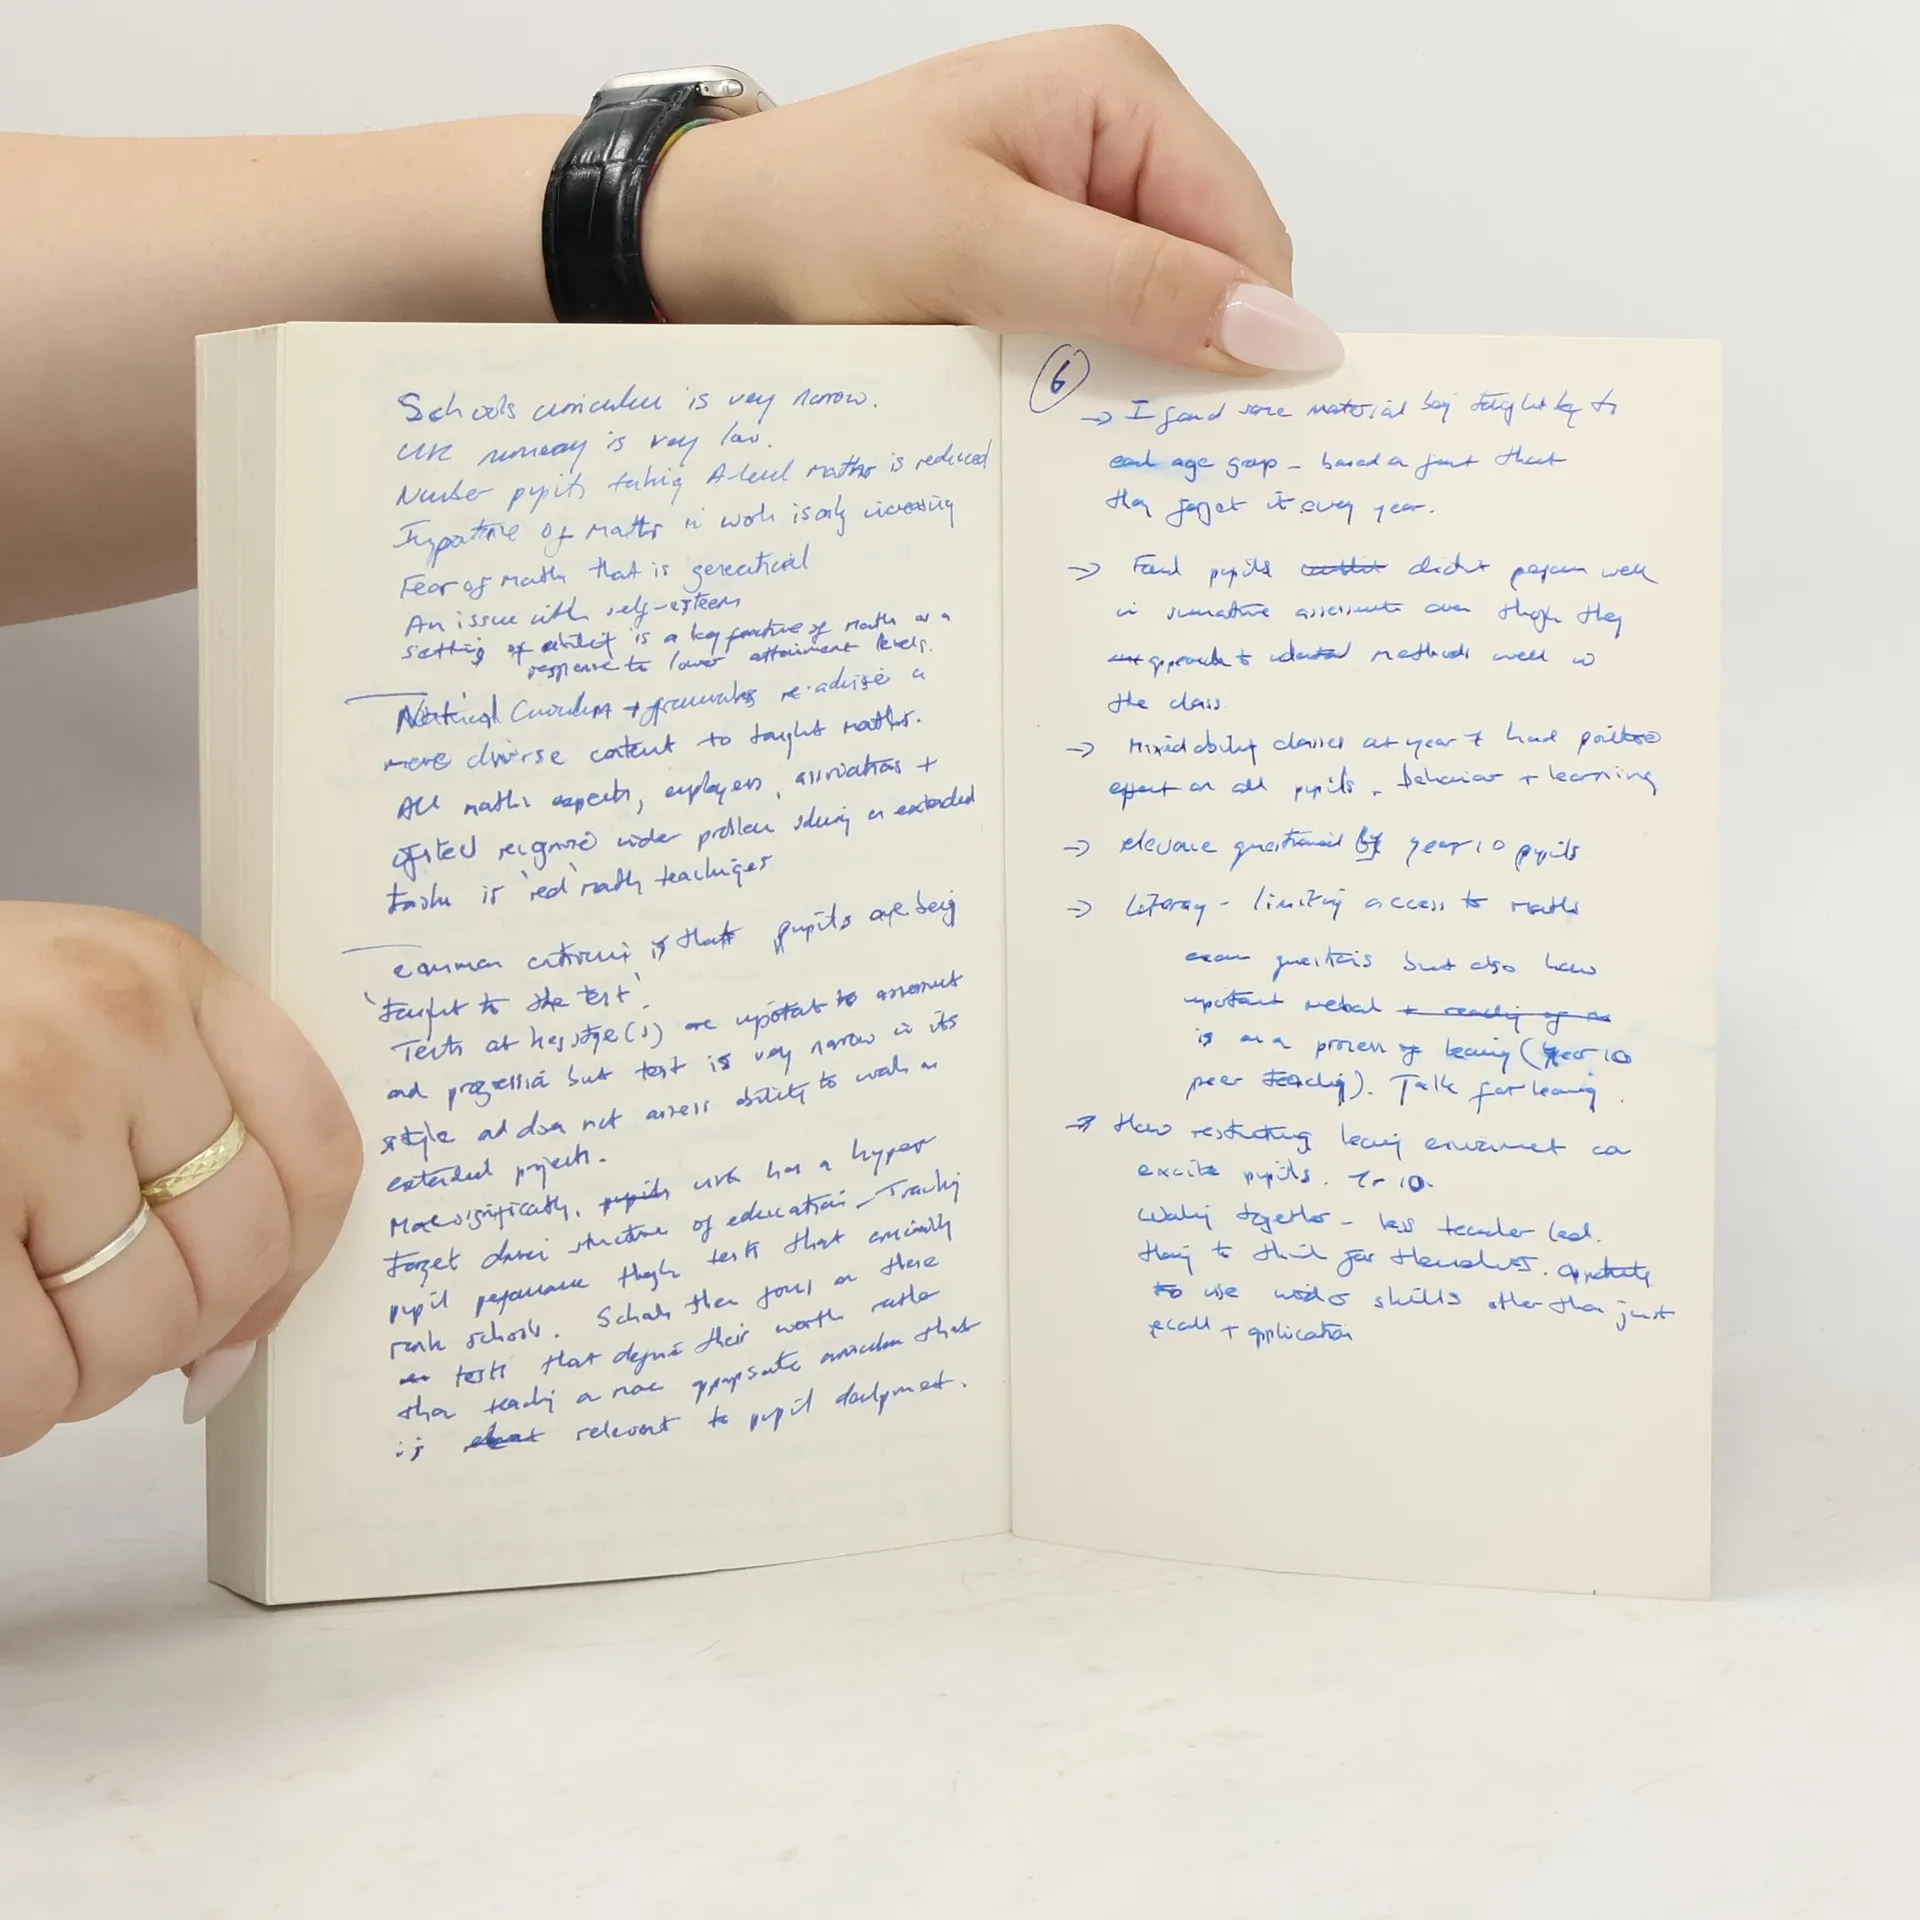 Schools curriculum is very narrow.
UK numeracy is very low.
Number pupils taking A-level maths is reduced
Importance of maths in work is only increasing
Fear of maths that is generational
An issue with self-esteem
setting of ability is a key feature of maths as a
response to lower attainment levels.
National Curriculum + frameworks re-advise a
more diverse content to taught maths.
All maths experts, employers, associations +
ofsted recognise wider problem solving in extended
tasks is 'real' maths
common criticism is that pupils are being
'taught to the test'.
Tests at key stage(s) are important to assessment
and progression but test is very narrow in its
style and does not assess ability to work on
extended projects.
More significantly, pupils UK has a hyper
target driven structure of education. Tracking
pupil performance through tests that crucially
rank schools. Schools then focus on these
tests that define their worth rather
than teaching a more appropriate curriculum that
is relevant to pupil development.
6
→ I found same material being taught to
each age group - based on fact that
they forget it every year.
→ Found pupils didn't perform well
in summative assessments even though they
approach methods well in
the class.
→ Mixed ability classes at year 7 had positive
effect on all pupils. behavior + learning
→ relevance questioned by year 10 pupils
→ literacy - limiting access to maths
exam questions but also how
important verbal + reading of
is as a process of learning (year 10
peer teaching). Talk for learning.
→ How restructuring learning environment can
excite pupils. Yr 10.
Working together - less teacher led.
Having to think for themselves. opportunity
to use wider skills other than just
recall + application